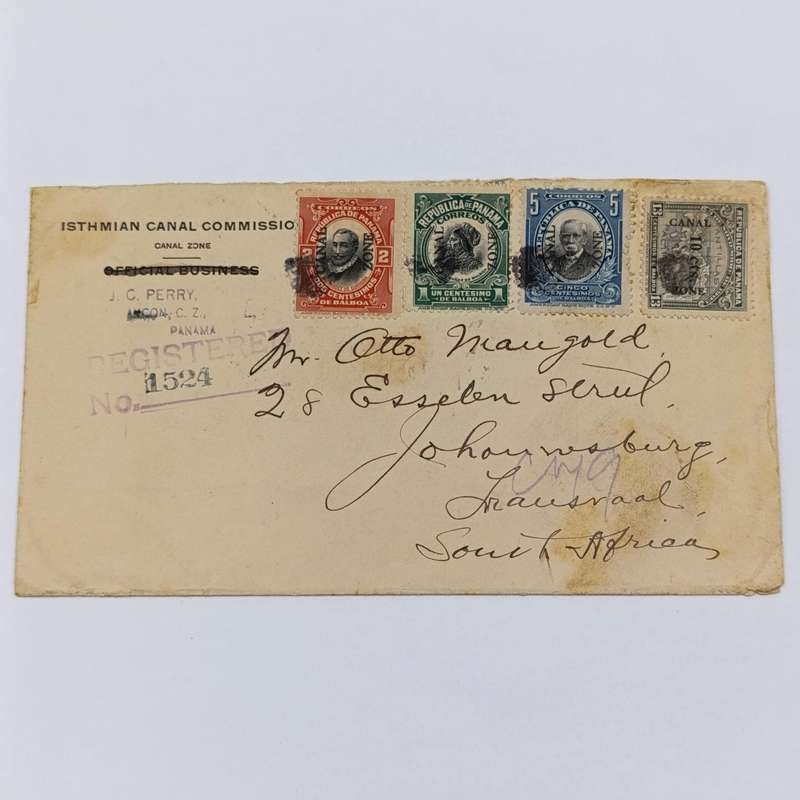 ISTHMIAN CANAL COMMISSIO
CANAL ZONE
OFFICIAL BUSINESS
J. C. PERRY,
ANCON, C. Z.,
PANAMA
REGISTERED
No. 1524
CORREOS
REPUBLICA DE PANAMA
CANAL ZONE
2 2
DOS CENTESIMOS
DE BALBOA
REPUBLICA DE PANAMA
CORREOS
CANAL ZONE
1 1
UN CENTESIMO
DE BALBOA
CORREOS
5 5
REPUBLICA DE PANAMA
CANAL ZONE
CINCO
CENTESIMOS
DE BALBOA
CANAL
10 cts
ZONE
REPUBLICA DE PANAMA
13 13
Mr. Otto Mangold,
28 Esselen Street,
Johannesburg,
Transvaal,
South Africa